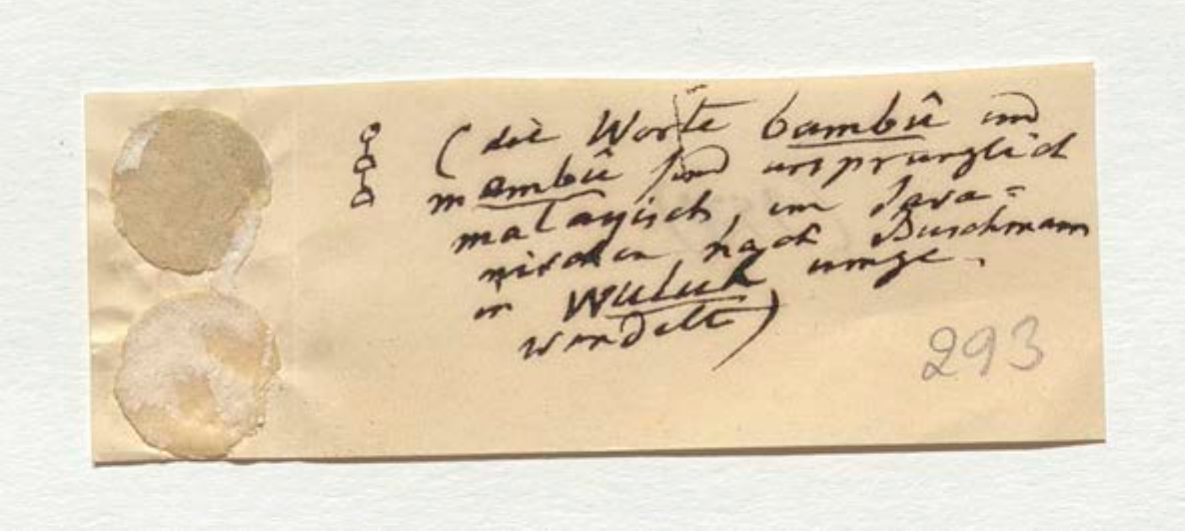 (die Worte bambû und
mambû sind ursprünglich
malayisch, im Java=
nischen nach Buschmann
in Wuluh umge-
wandelt)
293